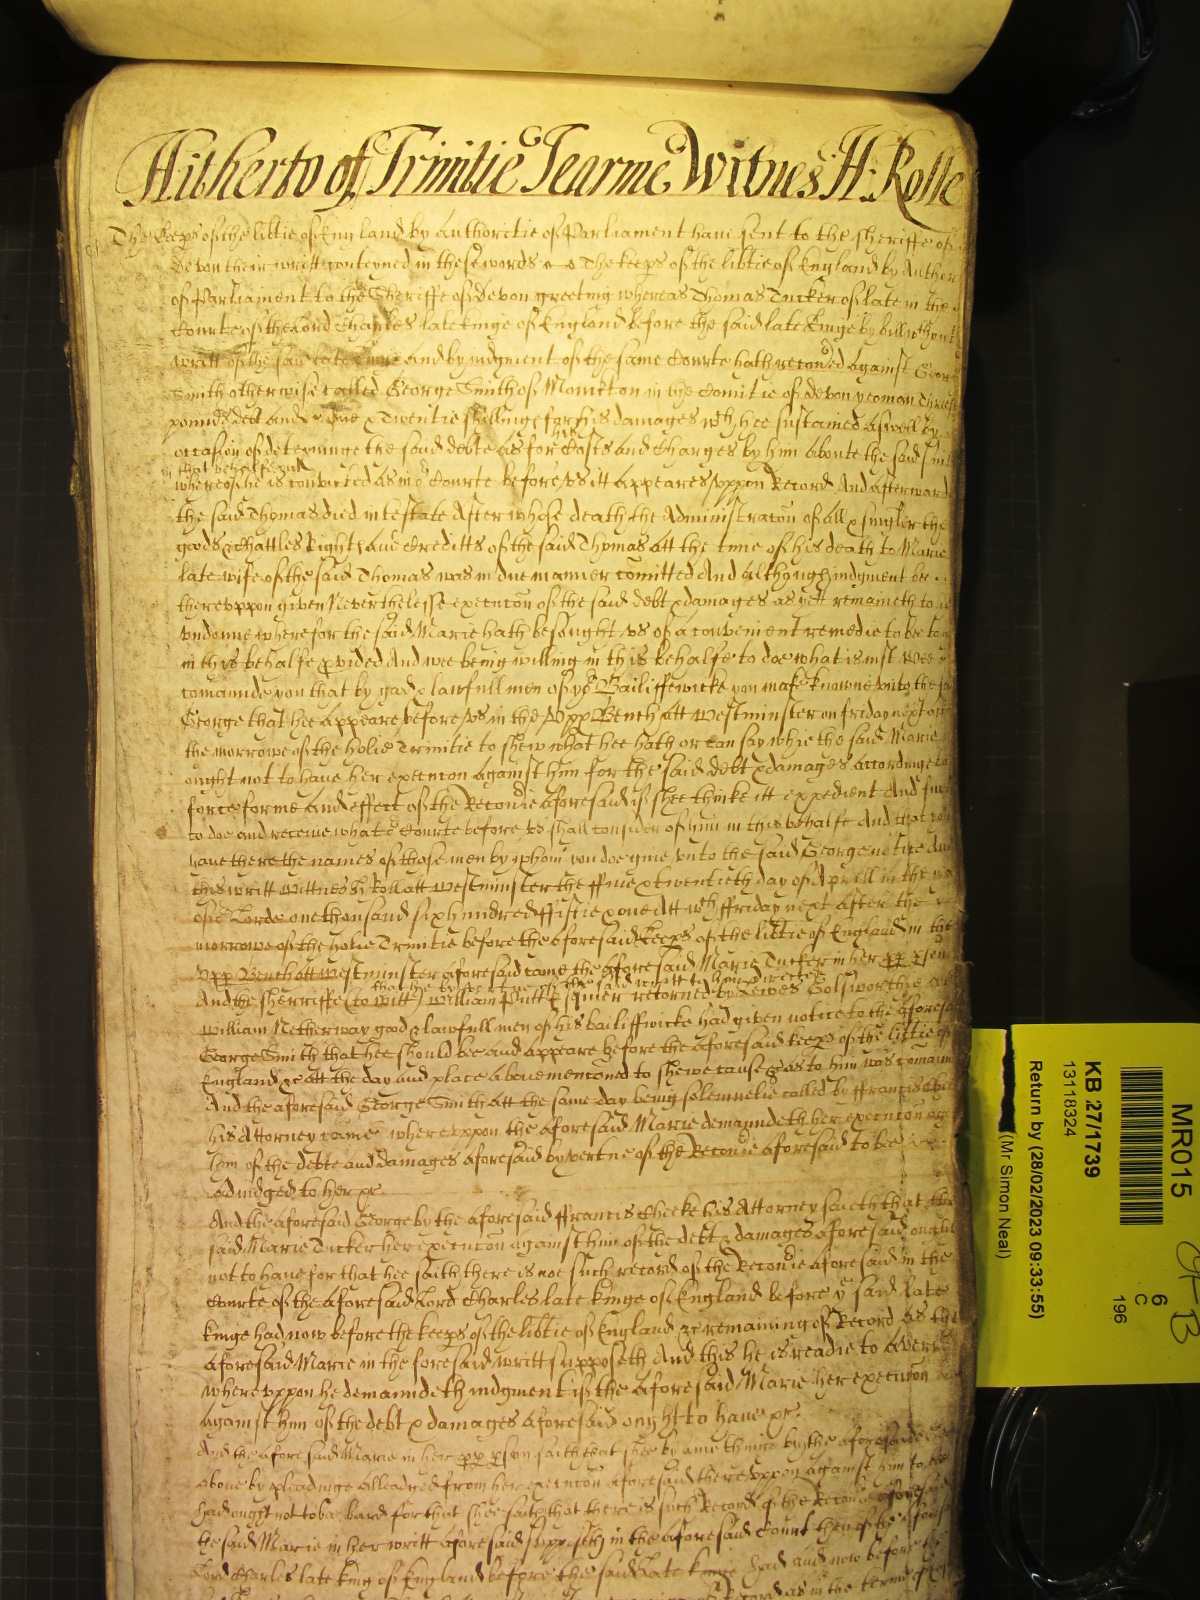 Hitherto of Trinitie Tearme Witnes H: Rolle
The Keeps of the libtie of England by Authoritie of Parliament have sent to the Sheriffe of
Devon their writt conteyned in these words The keeps of the libtie of England by Author
of Parliament to the Sheriffe of Devon greeting whereas Thomas Tucker of late in the
Courte of the Lord Charles late kinge of England before the said late kinge by bill wthout
writt of the said late kinge and by judgment of the same Courte hath recoved against Georg
Smith otherwise called George Smith of Monckton in the Comitie of Devon yeoman
pounds debt and Twentie shillings for his damages wch hee sustained aswell by
occasion of deteyninge the said debte as for his Costs and charges by him aboute the said suit
in that behalfe
whereof he is convicted as in ye Courte before vs itt appeares vppon Record And afterwards
the said Thomas died intestate After whose death the Administracon of all & singler the
goods Chattles Rights and Creditts of the said Thomas att the time of his death to Marie
late wife of the said Thomas was in due manner comitted And although judgment be
therevppon given Neverthelesse execucon of the said debt & damages as yett remaineth to
vndonne wherefor the said Marie hath besought vs of a convenient remedie to bee
in this behalfe pvided And wee being willing in this behalfe to doe what is just Wee
comaunde you that by good & lawfull men of yor Bailiffewicke you make knowne vnto the
George that hee appeare before vs in the Vpp Bench att Westminster on friday next
the morrowe of the Holie Trinitie to shew what hee hath or can say whie the said Marie
ought not to have her execucon against him for the said debt & damages accordinge to
force forme and effect of the Recovie aforesaid if shee thinke itt expedient And
to doe and receive what ye Courte before vs shall consider of him in this behalfe And that you
have there the names of those men by whom you doe give vnto the said George notice And
this writt Wittnes H Roll att Westminster the ffive & twentieth day of Aprill in the
of or Lorde one thousand six hundred ffiftie & one Att wch ffriday next after the
morrowe of the Holie Trinitie before the aforesaid keeps of the libtie of England in the
Vpp Bench att Westminster aforesaid came the aforesaid Marie Tucker in her pp pson
that he by vertue of the said writt to him directed
And the Sherriffe (to witt) William Putt Esquier returned by Lewes Golsworthie
William Netherway good & lawfull men of his bailiffwicke had given notice to the aforesa
George Smith that hee should bee and appeare before the aforesaid keeps of the libtie of
England &c att the day and place abovementioned to shewe cause &c as to him was comaun
And the aforesaid George Smith att the same day being solemnelie called by ffrancis
his Attorney came wherevppon the aforesaid Marie demaundeth her execucon
him of the debte and damages aforesaid by vertue of the Recovie aforesaid to bee
adiudged to her &c
And the aforesaid George by the aforesaid ffrancis Cheeke his Attorney saieth that the
said Marie Tucker her execucon against him of the debt & damages aforesaid ought
not to have for that hee saith there is noe such record of the Recovie aforesaid in the
Courte of the aforesaid Lord Charles late kinge of England before ye said late
kinge had now before the keeps of the libtie of England &c remaining of Record as the
aforesaid Marie in the foresaid writt supposeth And this he is readie to averr
wherevppon he demaundeth judgment if the aforesaid Marie her execucon
against him of the debt & damages aforesaid ought to have &c
And the aforesaid Marie in her pp pson saith that shee by anie thinge by the aforesaid
above by pleadinge alleadged from her execucon aforesaid therevppon against him to bee
had ought not to be bard for that shee saith that there is such Record of the Recovie aforesaid
the said Marie in her writt aforesaid supposeth in the aforesaid Court then of the aforesaid
Lord Charles late king of England before the said late kinge had and now before the
as in the terme of
MR015
KB 27/1739
13118324
6
C
196
Return by (28/02/2023 09:33:55)
(Mr Simon Neal)